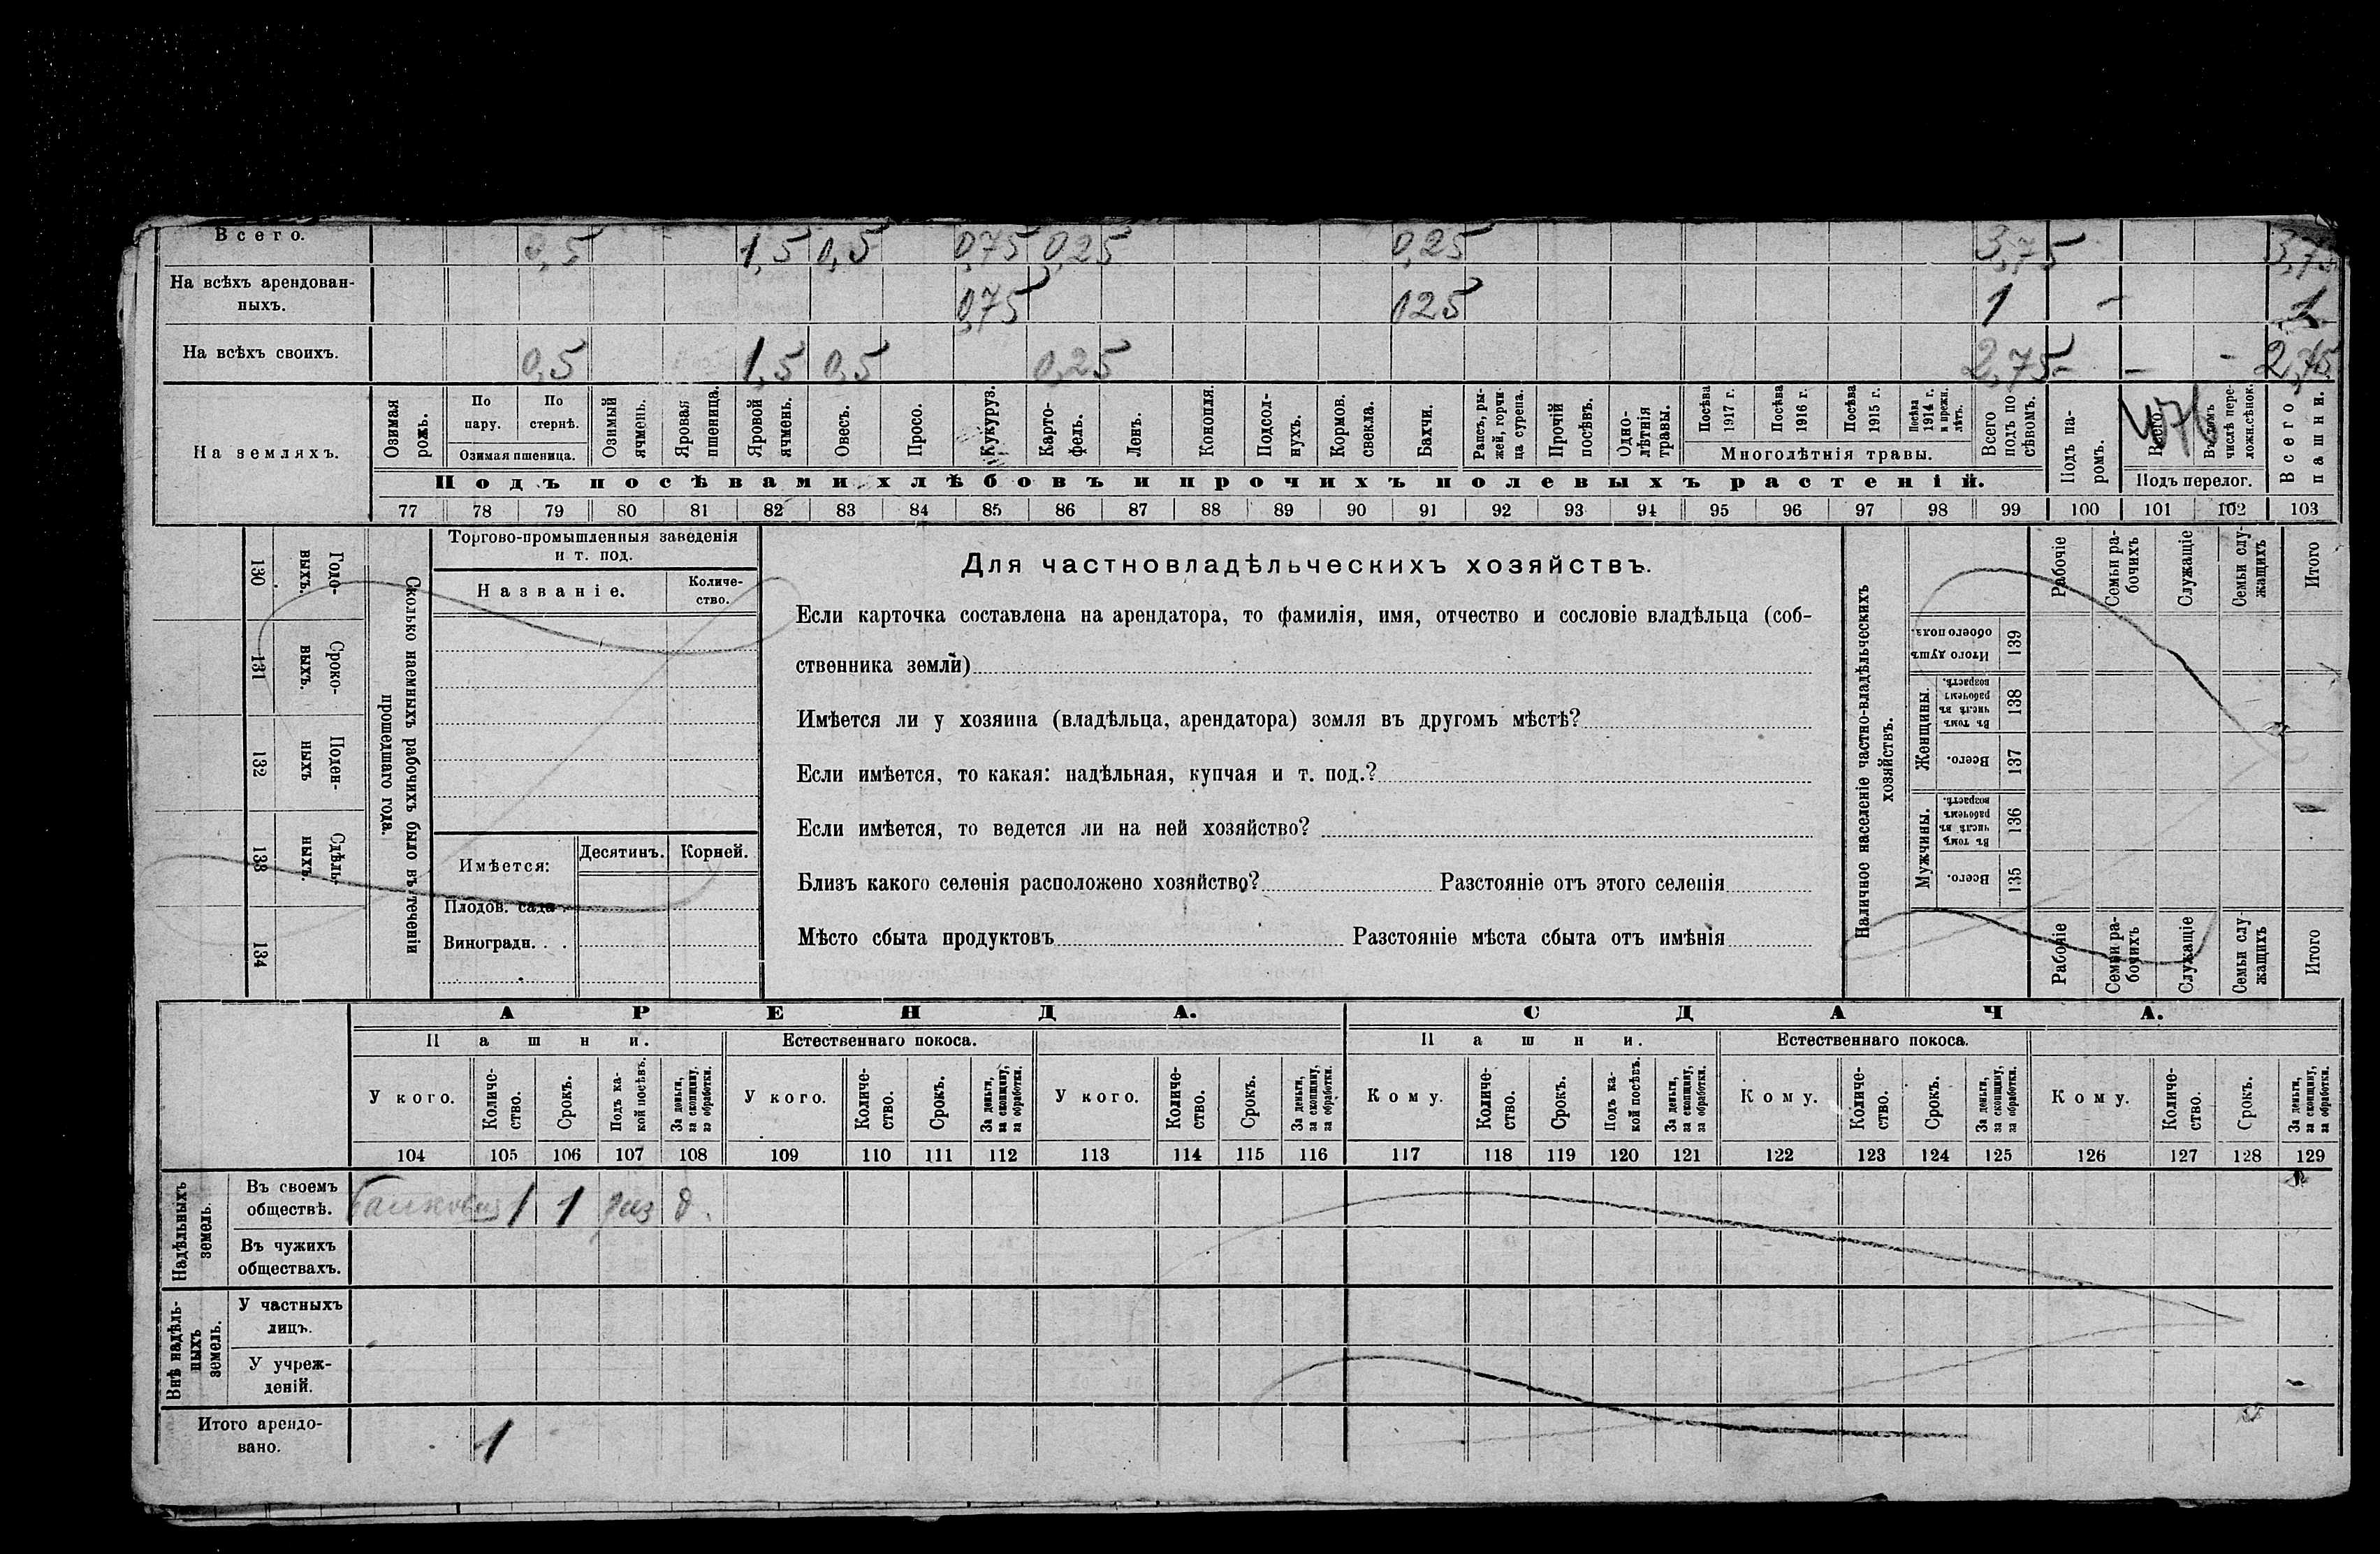 Всего. 0,5 1,5 0,5 0,75 0,25 0,25 3,75 3,75
На всѣхъ арендован-
ныхъ. 0,75 0,25 1 – 1
На всѣхъ своихъ. 0,5 1,5 0,5 0,25 2,75 - – - 2,75
На земляхъ.
Озимая рожь.
По пару.
По стернѣ.
Озимая пшеница.
Озимый ячмень.
Яровая пшеница.
Яровой ячмень.
Овесъ.
Просо.
Кукуруз.
Карто-
фель.
Ленъ.
Конопля.
Подсол-
нухъ.
Кормов. свекла.
Бахчи.
Рапсъ, ры-
жей, горчи-
ца сурепа.
Прочій посѣвъ.
Одно-
лѣтнія травы.
Посѣва 1917 г.
Посѣва 1916 г.
Посѣва 1915 г.
Посѣва 1914 г. и прежн. лѣтъ.
Многолѣтнія травы.
Всего подъ по-
сѣвомъ.
Подъ посѣвами хлѣбовъ и прочихъ полевыхъ растеній.
Подъ па-
ромъ.
Всего.
Въ томъ числѣ пере-
ложн.сѣнок.
Подъ перелог.
Всего пашни.
77 78 79 80 81 82 83 84 85 86 87 88 89 90 91 92 93 94 95 96 97 98 99 100 101 102 103
Годо-
выхъ.
130
Сроко-
выхъ.
131
Поден-
ныхъ
132
Сдѣль-
ныхъ.
133
134
Сколько наемныхъ рабочихъ было въ теченіи
прошедшаго года.
Торгово-промышленныя заведенія
и т. под.
Названіе.
Количе-
ство.
Имѣется: Десятинъ. Корней.
Плодов. сада .
Виноградн. . .
Для частновладѣльческихъ хозяйствъ.
Если карточка составлена на арендатора, то фамилія, имя, отчество и сословіе владѣльца (соб-
ственника земли)
Имѣется ли у хозяина (владѣльца, арендатора) земля въ другомъ мѣстѣ?
Если имѣется, то какая: надѣльная, купчая и т. под.?
Если имѣется, то ведется ли на ней хозяйство?
Близъ какого селенія расположено хозяйство? Разстояніе отъ этого селенія
Мѣсто сбыта продуктовъ Разстояніе мѣста сбыта отъ имѣнія
Наличное населеніе частно-владѣльческихъ
хозяйствъ.
Рабочіе
Семьи ра-
бочихъ
Служащіе
Семьи слу-
жащихъ
Итого
Итого душъ обоего пола.
139
Женщины.
Въ томъ числѣ въ рабочемъ возрастѣ.
138
Всего.
137
Мужчины.
Въ томъ числѣ въ рабочемъ возрастѣ.
136
Всего.
135
Рабочіе
Семьи ра-
бочихъ
Служащіе
Семьи слу-
жащихъ
Итого
АРЕНДА. СДАЧА.
Пашни. Естественнаго покоса. Пашни. Естественнаго покоса.
У кого. Количе-
ство. Срокъ. Подъ ка-
кой посѣвъ. За деньги, за скопщину, за обработки.
У кого. Количе-
ство. Срокъ. За деньги, за скопщину, за обработки.
У кого. Количе-
ство. Срокъ. За деньги, за скопщину, за обработки.
Кому. Количе-
ство. Срокъ. Подъ ка-
кой посѣвъ. За деньги, за скопщину, за обработки.
Кому. Количе-
ство. Срокъ. За деньги, за скопщину, за обработки.
Кому. Количе-
ство. Срокъ. За деньги, за скопщину, за обработки.
104 105 106 107 108 109 110 111 112 113 114 115 116 117 118 119 120 121 122 123 124 125 126 127 128 129
Надѣльныхъ
земель.
Въ своемъ
обществѣ. 1 1 д.
Въ чужихъ
обществахъ.
Внѣ надѣль-
ныхъ
земель.
У частныхъ
лицъ.
У учреж-
деній.
Итого арендо-
вано. 1